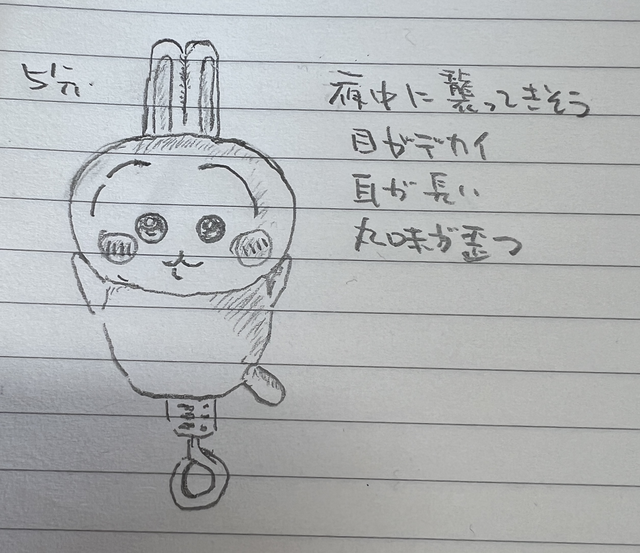 5分.
夜中に襲ってきそう
目がデカイ
耳が長い
丸味が歪つ